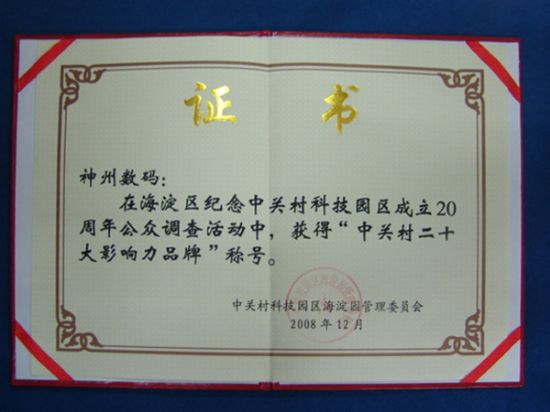 证 书
神州数码：
在海淀区纪念中关村科技园区成立20
周年公众调查活动中，获得“中关村二十
大影响力品牌”称号。
中关村科技园区海淀园管理委员会
2008年12月